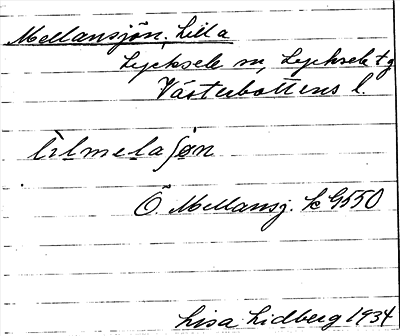 Mellansjön, Lilla
Lycksele sn, Lycksele tg
Västerbottens l.
lilmelaʃøn
Ö. Mellansj. k G550
Lisa Lidberg 1934